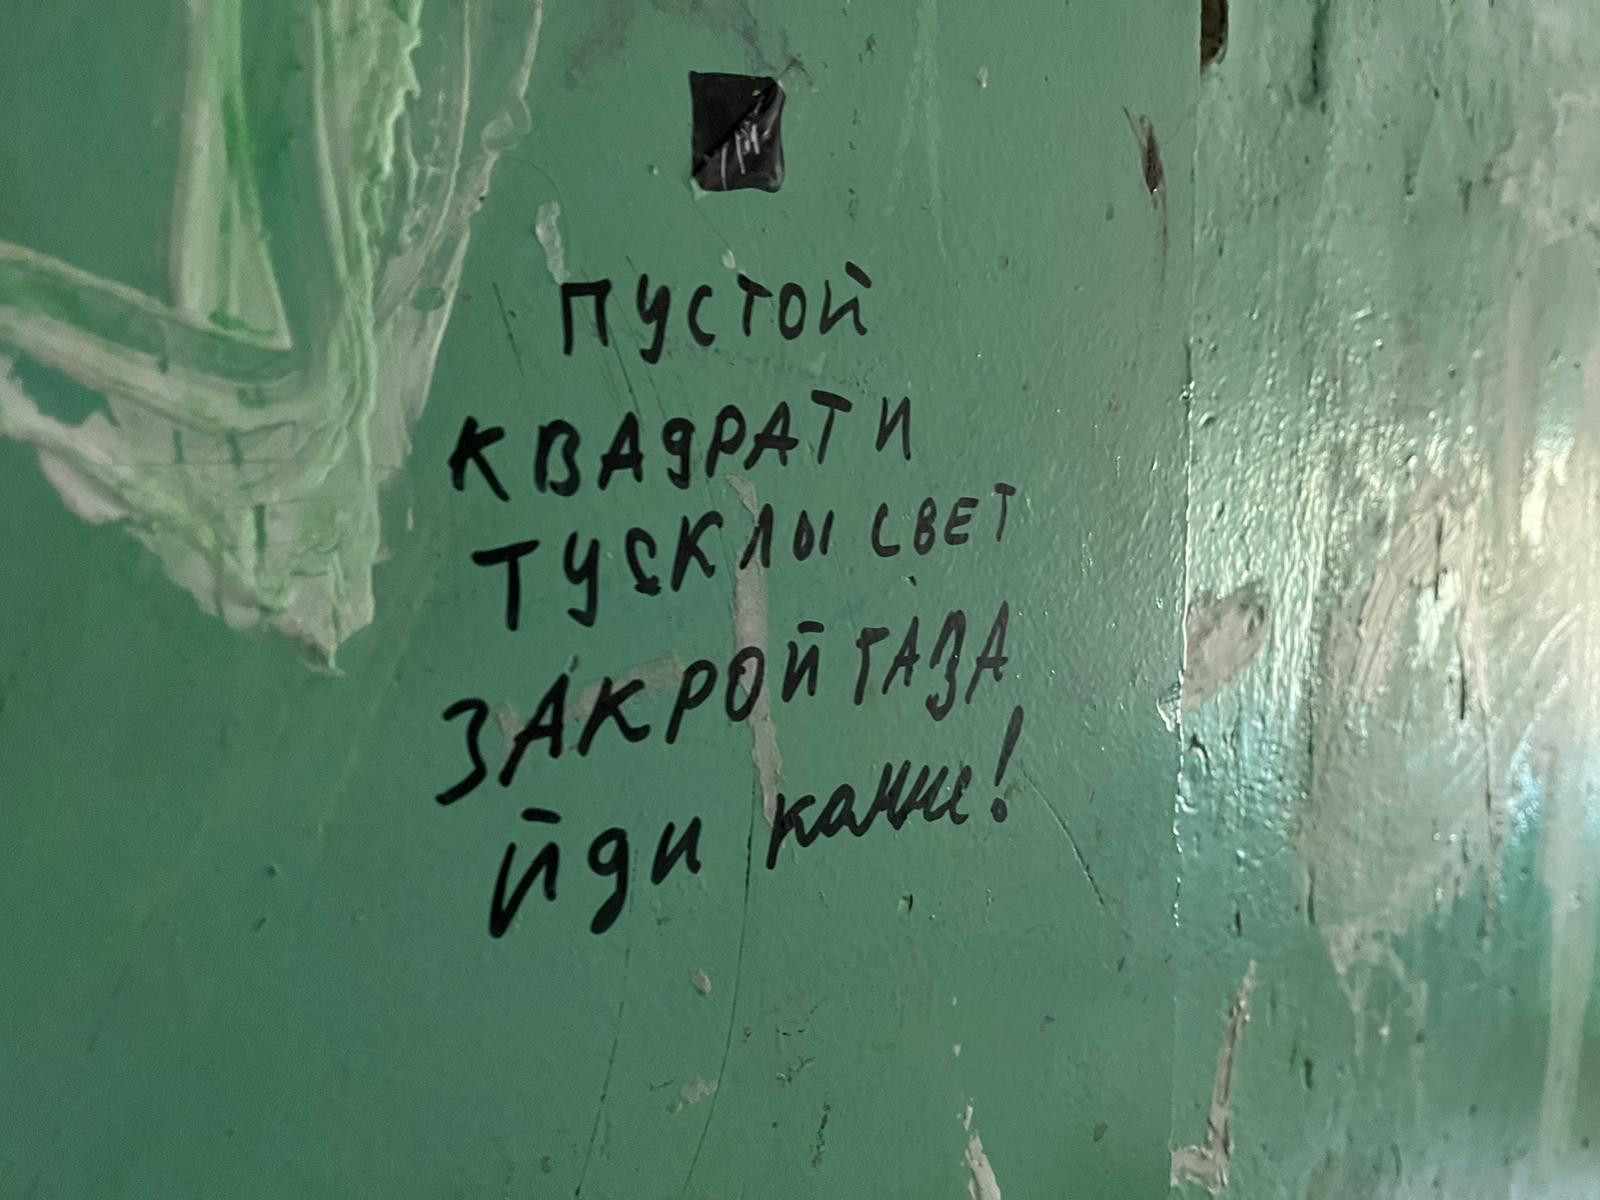 ПУСТОЙ
КВАДРАТ И
ТУСКЛЫ СВЕТ
ЗАКРОЙ ГАЗА
ЙДИ камне!